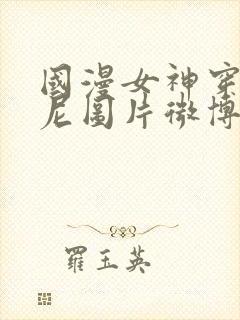 國漫女神穿
尼圖片微博
羅玉英